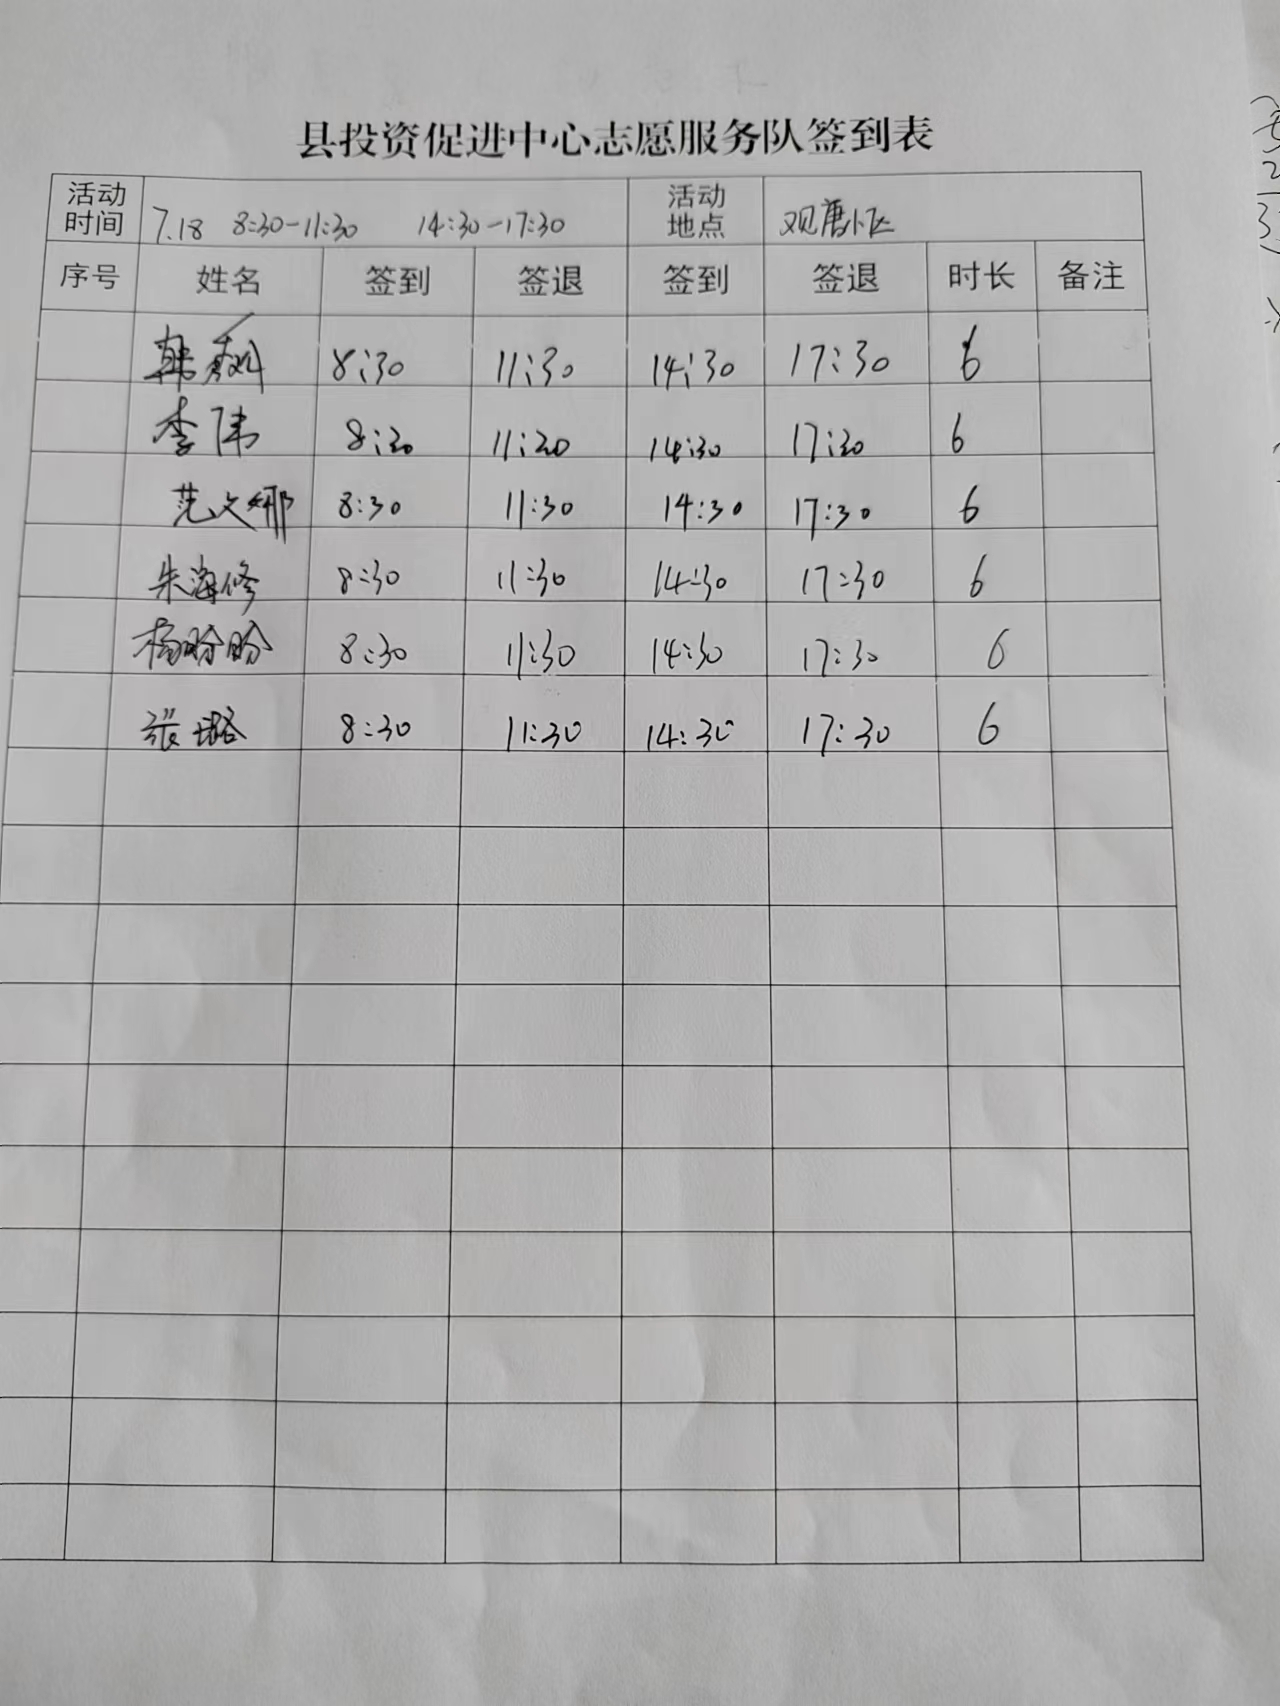 县投资促进中心志愿服务队签到表
活动时间 7.18 8:30-11:30 14:30-17:30 活动地点 观唐小区
序号 姓名 签到 签退 签到 签退 时长 备注
韩 8:30 11:30 14:30 17:30 6
李伟 8:30 11:30 14:30 17:30 6
范文娜 8:30 11:30 14:30 17:30 6
朱海修 8:30 11:30 14:30 17:30 6
杨盼盼 8:30 11:30 14:30 17:30 6
张璐 8:30 11:30 14:30 17:30 6